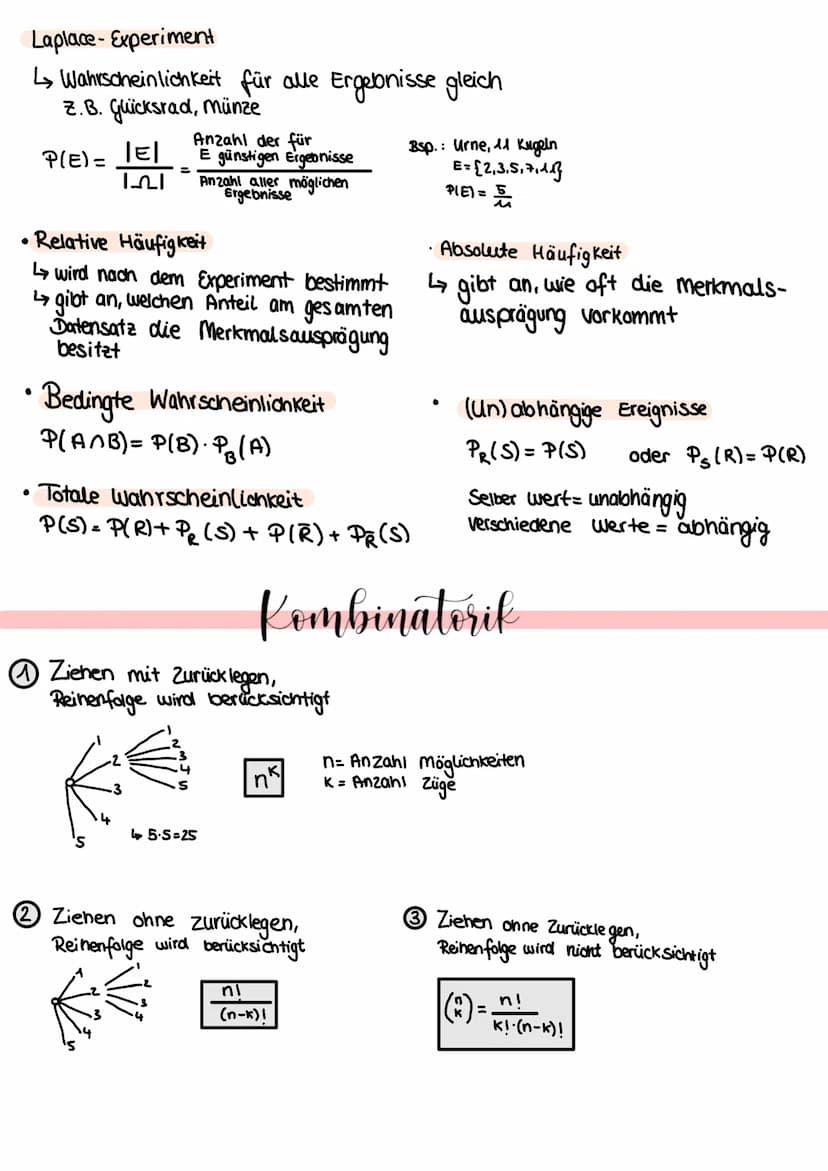 Laplace-Experiment
↳ Wahrscheinlichkeit für alle Ergebnisse gleich
z.B. Glücksrad, Münze
P(E) = |E| / |Ω| = Anzahl der für E günstigen Ergebnisse / Anzahl aller möglichen Ergebnisse
Bsp.: Urne, 11 Kugeln
E = {2,3,5,7,11}
P(E) = 5/11
• Relative Häufigkeit
↳ wird nach dem Experiment bestimmt
↳ gibt an, welchen Anteil am gesamten
Datensatz die Merkmalsausprägung
besitzt
· Absolute Häufigkeit
↳ gibt an, wie oft die Merkmals-
ausprägung vorkommt
• Bedingte Wahrscheinlichkeit
P(A∩B) = P(B) · P_B(A)
• (Un)abhängige Ereignisse
P_R(S) = P(S) oder P_S(R) = P(R)
Selber wert = unabhängig
verschiedene werte = abhängig
• Totale wahrscheinlichkeit
P(S) = P(R) + P_R(S) + P(R̅) + P_R̅(S)
Kombinatorik
① Ziehen mit Zurücklegen,
Reihenfolge wird berücksichtigt
1
2
3
4
5
1
2
3
4
5
↳ 5·5=25
n^k
n = Anzahl Möglichkeiten
k = Anzahl Züge
② Ziehen ohne zurücklegen,
Reihenfolge wird berücksichtigt
1
2
3
4
5
1
2
3
4
n! / (n-k)!
③ Ziehen ohne Zurücklegen,
Reihenfolge wird nicht berücksichtigt
(n k) = n! / k!·(n-k)!